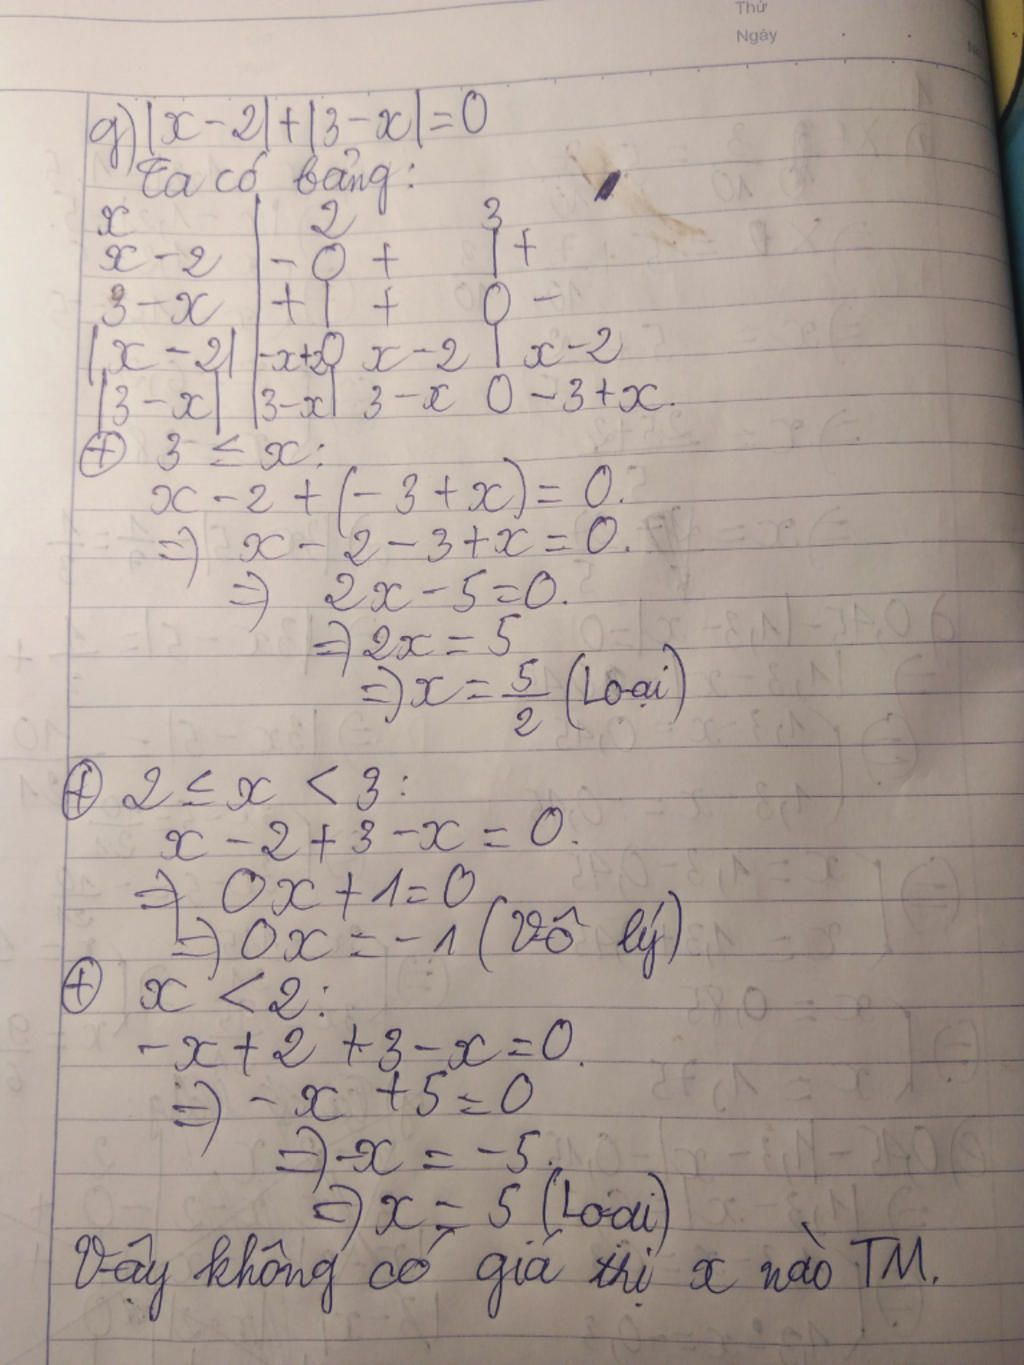 Thứ
Ngày
g) |x-2|+|3-x|=0
Ta có bảng:
x | 2 3
x-2 | - 0 + | +
3-x | + | + 0 -
|x-2| | -x+2 0 x-2 | x-2
|3-x| | 3-x | 3-x 0 -3+x.
⊕ 3 ≤ x:
x-2+(-3+x)=0.
=> x-2-3+x=0.
=> 2x-5=0.
=> 2x=5
=> x=5/2 (Loại)
⊕ 2 ≤ x < 3:
x-2+3-x=0.
=> 0x+1=0
=> 0x=-1 (Vô lý)
⊕ x < 2:
-x+2+3-x=0.
=> -x+5=0
=> -x=-5.
=> x=5 (Loại)
Vậy không có giá trị x nào TM.